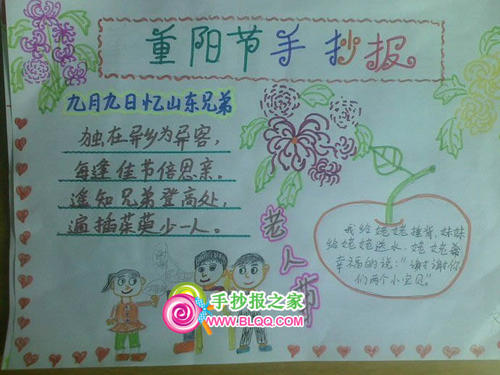 重阳节手抄报
九月九日忆山东兄弟
独在异乡为异客，
每逢佳节倍思亲。
遥知兄弟登高处，
遍插茱萸少一人。
老人节
我给姥姥捶背，妹妹
给姥姥送水，姥姥
幸福的说："谢谢你
们两个小宝贝。"
手抄报之家
WWW.BLQQ.COM